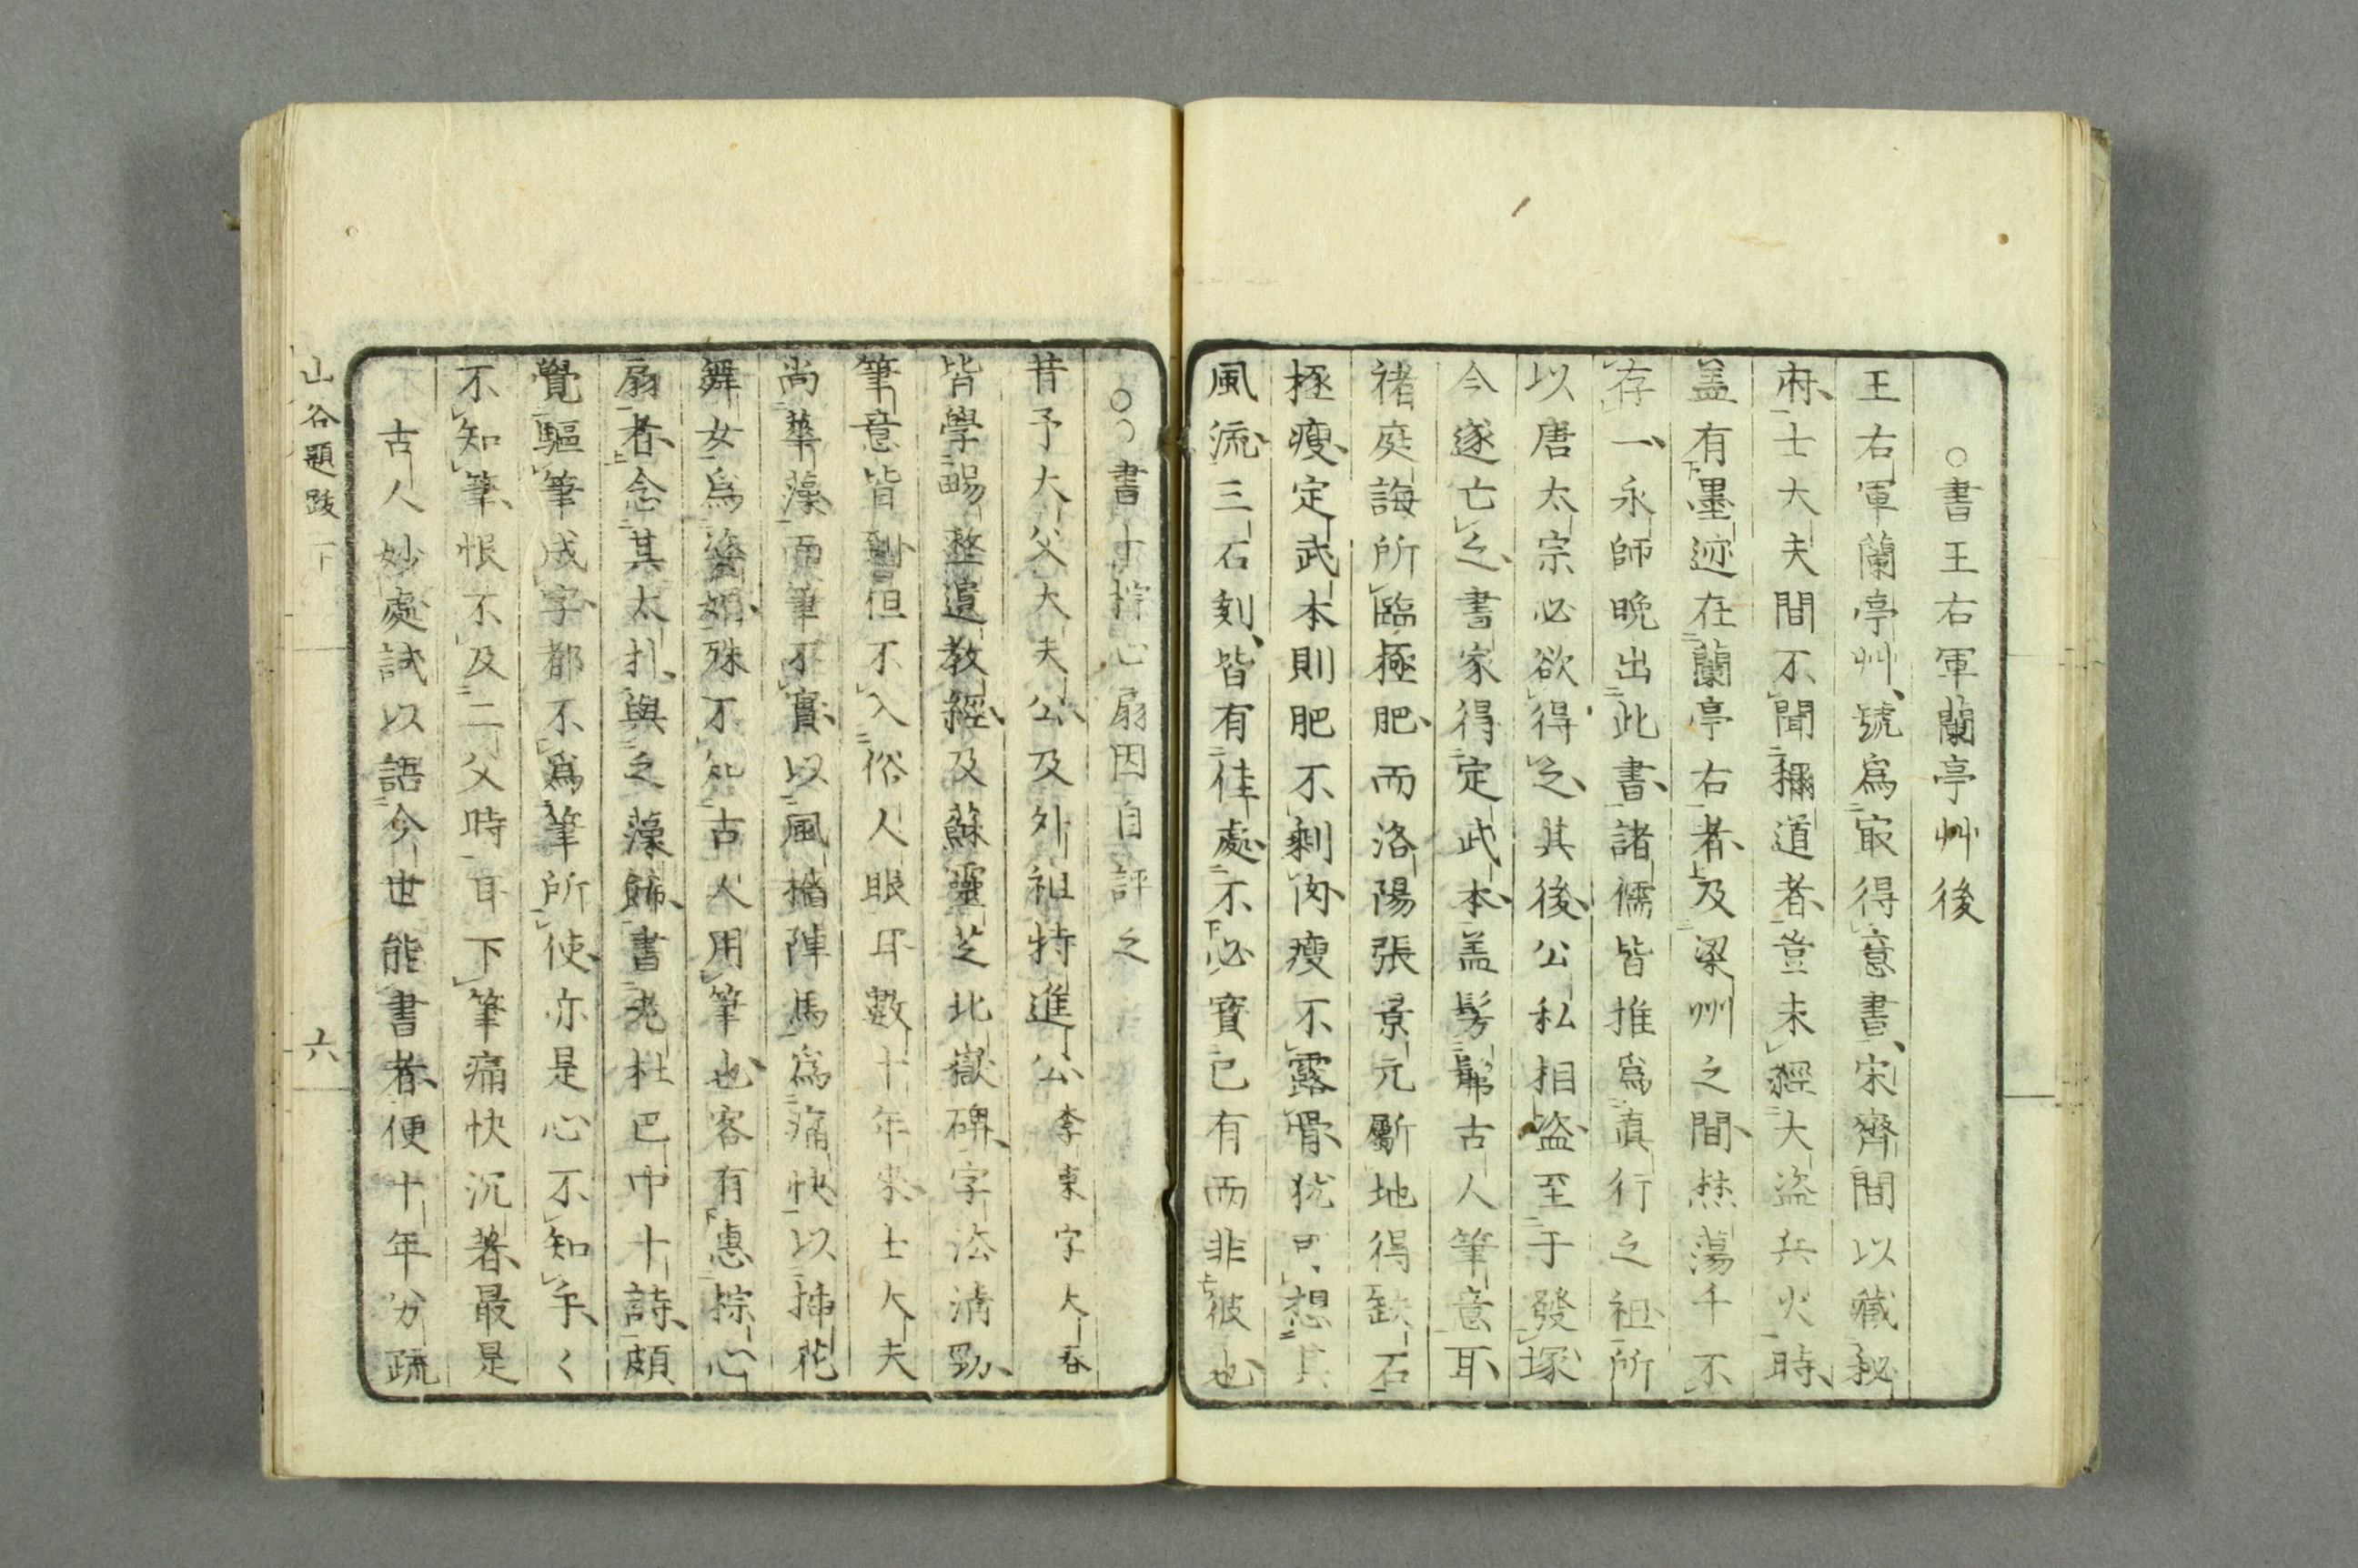 ○書王右軍蘭亭艸後
王右軍蘭亭艸號爲㝡得意書宋齊間以藏秘
府士大夫間不聞稱道者豈未經大盜兵火時
盖有墨迹在蘭亭右者及梁州之間焚蕩千不
存一永師晚出此書諸儒皆推爲眞行之祖所
以唐太宗必欲得之其後公私相盗至于發塚
今遂亡之書家得定武本盖髣髴古人筆意耳
褚庭誨所臨極肥而洛陽張景元斸地得缺石
極瘦定武本則肥不剩肉瘦不露骨犹可想其
風流三石刻皆有佳處不必寳已有而非彼也
○書十棕心扇因自評之
昔予大父大夫公及外祖特進公李東字大春
皆學暢整遺教經及蘇靈芝北嶽碑字法清勁
筆意皆到但不入俗人眼耳數十年來士大夫
尚華藻而筆不實以風檣陣馬爲痛快以插花
舞女爲姿媚殊不知古人用筆也客有惠棕心
扇者念其太朴與之藻飾書老杜巴中十詩頗
覺驅筆成字都不爲筆所使亦是心不知手く
不知筆恨不及二父時耳下筆痛快沉著最是
古人妙處試以語今世能書者便十年分疏
山谷題跋 下
六